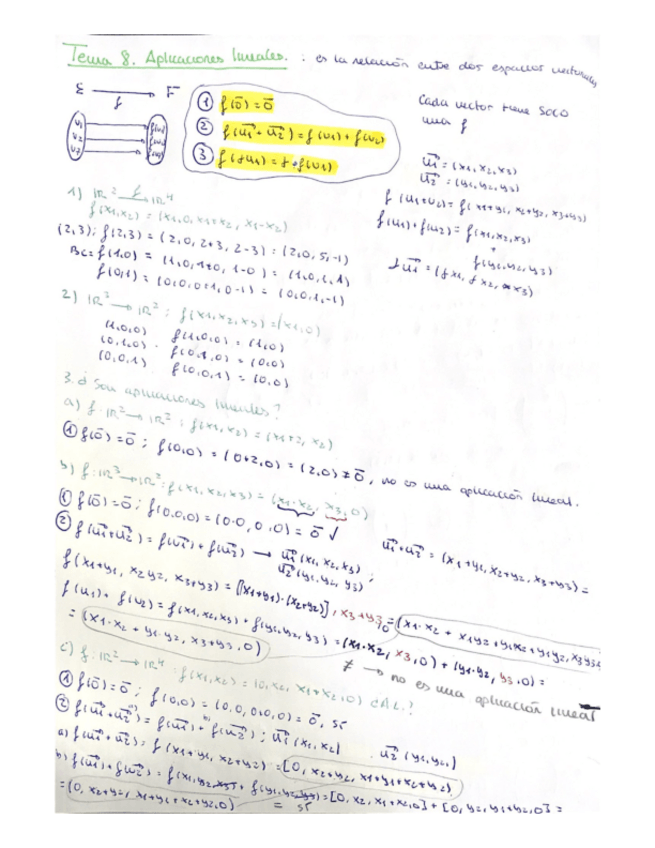 Tema 8. Aplicaciones lineales. : es la relación entre dos espacios vectoriales
E → F
f
Cada vector tiene SOLO
una f
① f(ō) = ō
② f(u1 + u2) = f(u1) + f(u2)
③ f(λu1) = λ·f(u1)
u1 = (x1, x2, x3)
u2 = (y1, y2, y3)
f(u1+u2) = f(x1+y1, x2+y2, x3+y3)
f(u1) + f(u2) = f(x1, x2, x3)
+
f(y1, y2, y3)
1) IR² f→ IR⁴
f(x1, x2) = (x1, 0, x1+x2, x1-x2)
(2,3); f(2,3) = (2, 0, 2+3, 2-3) = (2, 0, 5, -1)
Bc = f(1,0) = (1, 0, 1+0, 1-0) = (1, 0, 1, 1)
f(0,1) = (0, 0, 0+1, 0-1) = (0, 0, 1, -1)
2) IR³ → IR² ; f(x1, x2, x3) = (x1, 0)
(1,0,0) f(1,0,0) = (1,0)
(0,1,0) . f(0,1,0) = (0,0)
(0,0,1) f(0,0,1) = (0,0)
3. ¿Son aplicaciones lineales?
a) f: IR² → IR² ; f(x1, x2) = (x1+2, x2)
① f(ō) = ō ; f(0,0) = (0+2, 0) = (2,0) ≠ ō, no es una aplicación lineal.
b) f: IR³ → IR² ; f(x1, x2, x3) = (x1·x2, x3, 0)
① f(ō) = ō ; f(0,0,0) = (0·0, 0, 0) = ō ✓
② f(u1+u2) = f(u1) + f(u2) → u1 (x1, x2, x3) ;
u2 (y1, y2, y3)
u1+u2 = (x1+y1, x2+y2, x3+y3) =
f(x1+y1, x2 y2, x3+y3) = [(x1+y1)·(x2+y2)], x3+y3, 0 = (x1·x2 + x1y2 + y1x2 + y1y2, x3y3+
f(u1) + f(u2) = f(x1, x2, x3) + f(y1, y2, y3) = (x1·x2, x3, 0) + (y1·y2, y3, 0) =
= (x1·x2 + y1·y2, x3+y3, 0)
≠ → no es una aplicación lineal
c) f: IR² → IR⁴ : f(x1, x2) = (0, x2, x1+x2, 0) ¿AL.?
① f(ō) = ō ; f(0,0) = (0, 0, 0, 0) = ō, sí
② f(u1+u2) = f(u1) + f(u2) ; u1 (x1, x2) . u2 (y1, y2)
a) f(u1+u2) = f(x1+y1, x2+y2) = [0, x2+y2, x1+y1+x2+y2)
b) f(u1) + f(u2) = f(x1, + f(y1, = [0, x2, x1+x2, 0] + [0, y2, y1+y2, 0] =
= (0, x2+y2, x1+y1+x2+y2, 0) = sí